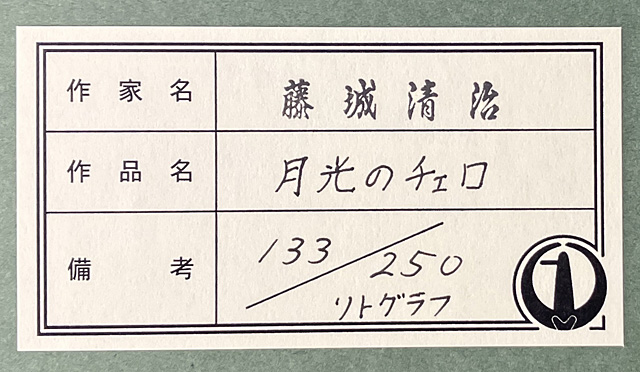 作家名 藤城清治
作品名 月光のチェロ
備考 133/250
リトグラフ